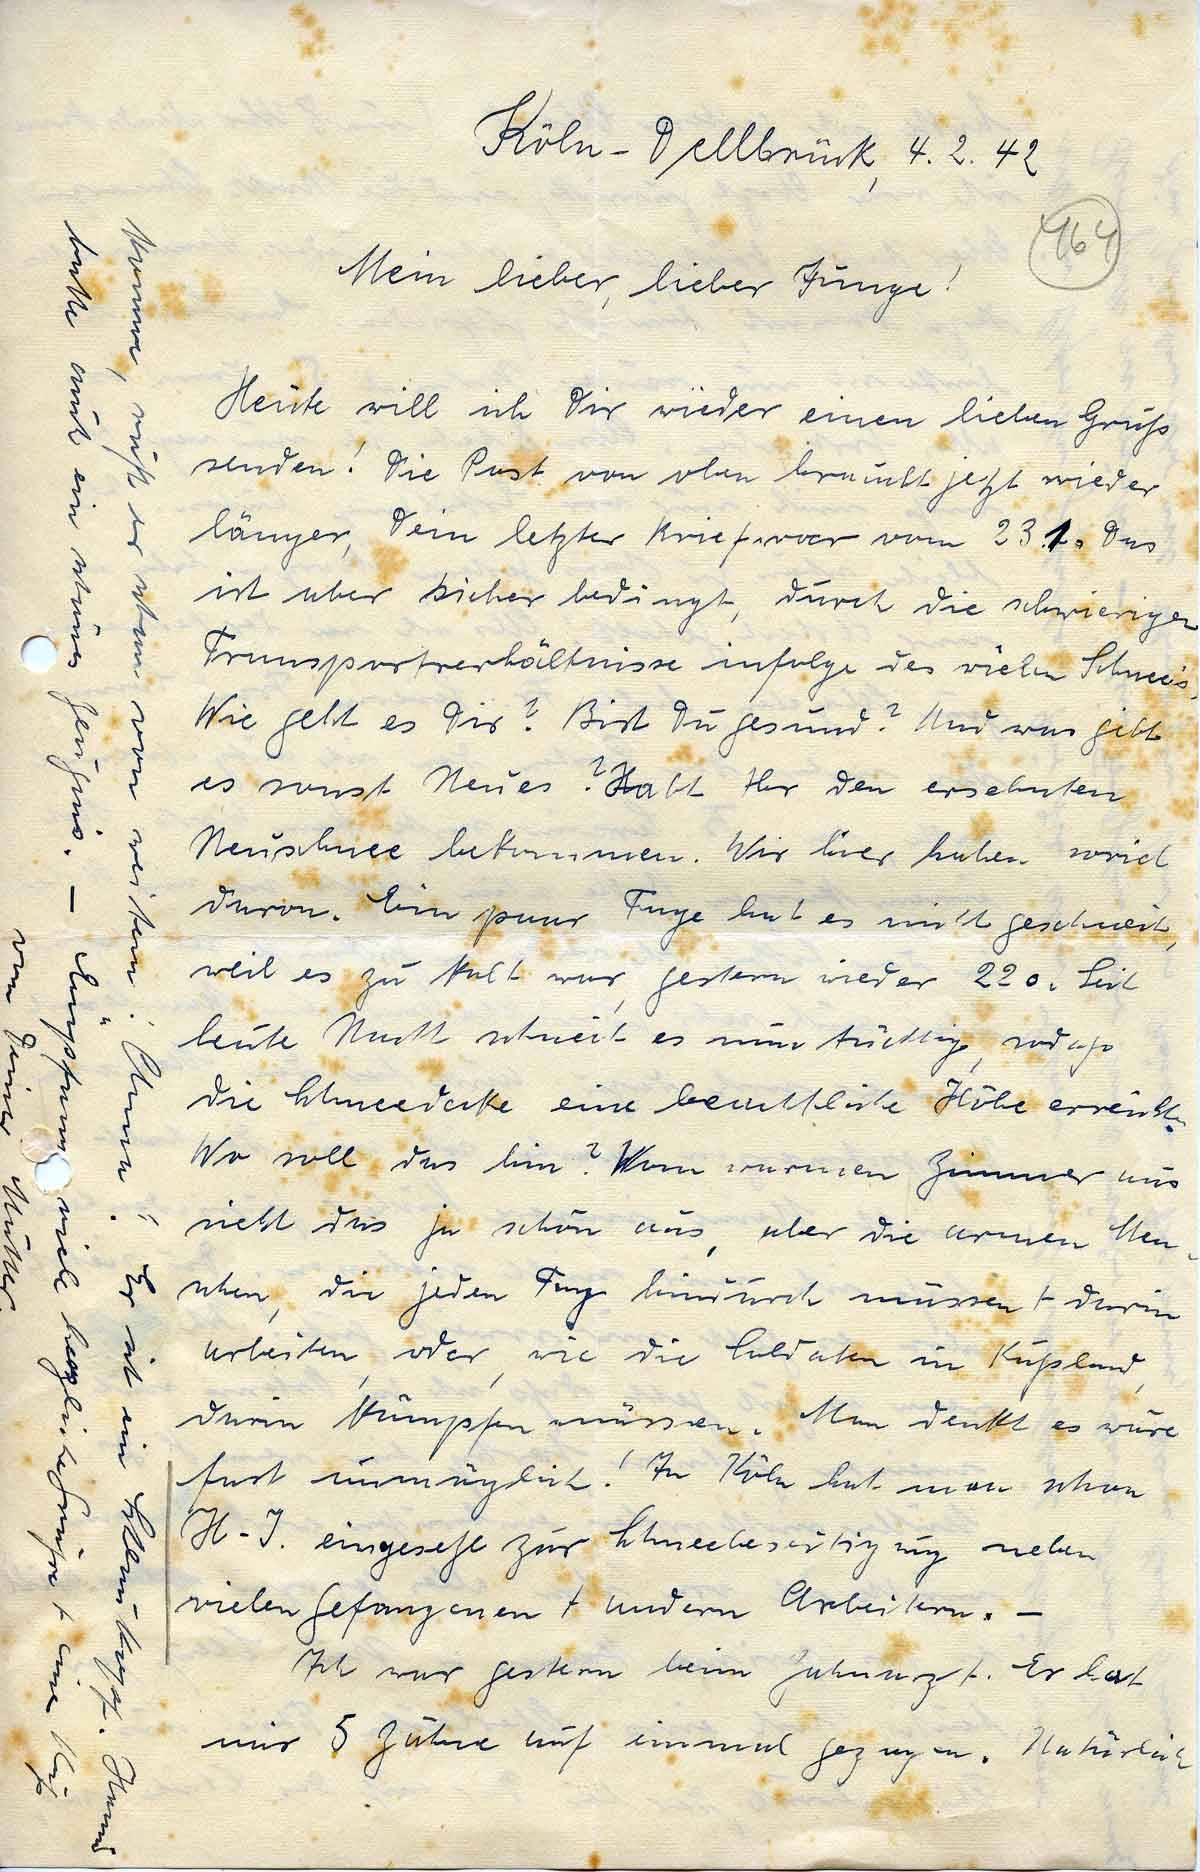 Köln-Dellbrück, 4.2.42
464
Mein lieber, lieber Junge!
Heute will ich Dir wieder einen lieben Gruß
senden! Die Post von oben braucht jetzt wieder
länger, Dein letzter Brief war vom 23.1. Das
ist aber sicher bedingt, durch die schwierigen
Transportverhältnisse infolge des vielen Schnee's.
Wie geht es Dir? Bist Du gesund? Und was gibt
es sonst Neues? Habt Ihr den ersehnten
Neuschnee bekommen. Wir hier haben soviel
davon. Ein paar Tage hat es nicht geschneit,
weil es zu kalt war, gestern wieder 22o. Seit
heute Nacht schneit es nun tüchtig, sodaß
die Schneedecke eine beachtliche Höhe erreicht.
Wo soll das hin? Vom warmen Zimmer aus
sieht das ja schön aus, aber die armen Men-
schen, die jeden Tag hindurch müssen + darin
arbeiten, oder, wie die Soldaten in Rußland,
darin kämpfen müssen. Man denkt es wäre
fast unmöglich! In Köln hat man schon
H-J. eingesetzt zur Schneebeseitigung neben
vielen Gefangenen + andern Arbeitern. -
Ich war gestern beim Zahnarzt. Er hat
mir 5 Zähne auf einmal gezogen. Natürlich
komme, ruft er schon von weitem: "Anna"! Er ist ein Schlaukopf. Hanna
hatte auch ein schönes Zeugnis. - Empfang viele herzliche Grüße + einen Kuß
von Deiner Mutter.